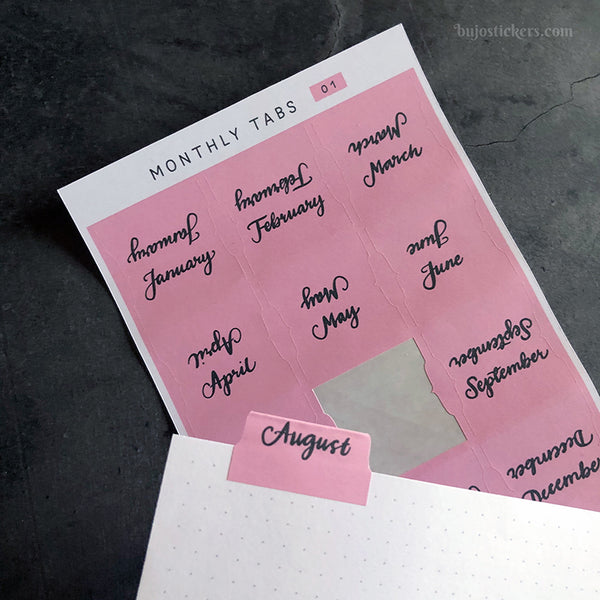 bujostickers.com
MONTHLY TABS 01
January
January
February
February
March
March
April
April
May
May
June
June
August
September
September
December
December